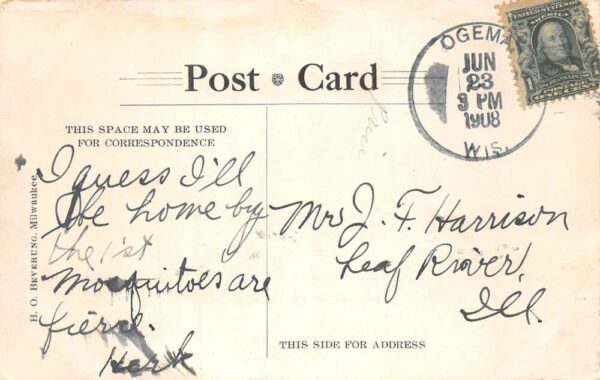 OGEMA
JUN
23
3 PM
1908
WIS.
UNITED STATES OF AMERICA
FRANKLIN
Post Card
THIS SPACE MAY BE USED
FOR CORRESPONDENCE
THIS SIDE FOR ADDRESS
H. O. BEVERUNG, Milwaukee
I guess I'll
be home by
the 1st
Mosquitoes are
fierce.
Herb
Mrs J. F. Harrison
Leaf River,
Ill.